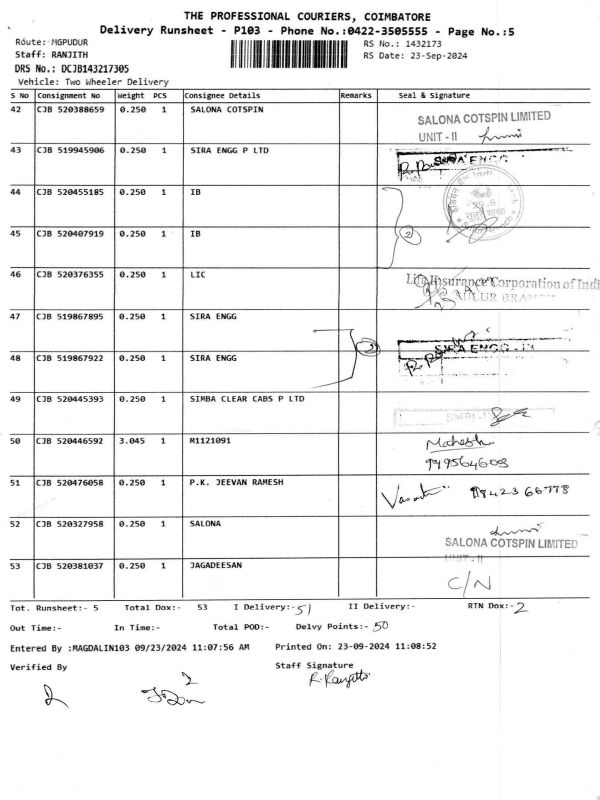 THE PROFESSIONAL COURIERS, COIMBATORE
Delivery Runsheet - P103 - Phone No.:0422-3505555 - Page No.:5
Route: MGPUDUR
RS No.: 1432173
Staff: RANJITH
RS Date: 23-Sep-2024
DRS No.: DCJB143217305
Vehicle: Two Wheeler Delivery
S No Consignment No Weight PCS Consignee Details Remarks Seal & Signature
42 CJB 520388659 0.250 1 SALONA COTSPIN
SALONA COTSPIN LIMITED
UNIT - II
43 CJB 519945906 0.250 1 SIRA ENGG P LTD
SIRA ENGG
44 CJB 520455185 0.250 1 IB
2
45 CJB 520407919 0.250 1 IB
46 CJB 520376355 0.250 1 LIC
Life Insurance Corporation of Indi
SULUR BRANCH
47 CJB 519867895 0.250 1 SIRA ENGG
2
SIRA ENGG
48 CJB 519867922 0.250 1 SIRA ENGG
49 CJB 520445393 0.250 1 SIMBA CLEAR CABS P LTD
50 CJB 520446592 3.045 1 M1121091
Mahesh
9495646003
51 CJB 520476058 0.250 1 P.K. JEEVAN RAMESH
9842366778
52 CJB 520327958 0.250 1 SALONA
SALONA COTSPIN LIMITED
UNIT - II
53 CJB 520381037 0.250 1 JAGADEESAN
C/N
Tot. Runsheet:- 5 Total Dox:- 53 I Delivery:- 51 II Delivery:- RTN Dox:- 2
Out Time:- In Time:- Total POD:- Delvy Points:- 50
Entered By :MAGDALIN103 09/23/2024 11:07:56 AM Printed On: 23-09-2024 11:08:52
Verified By Staff Signature
2